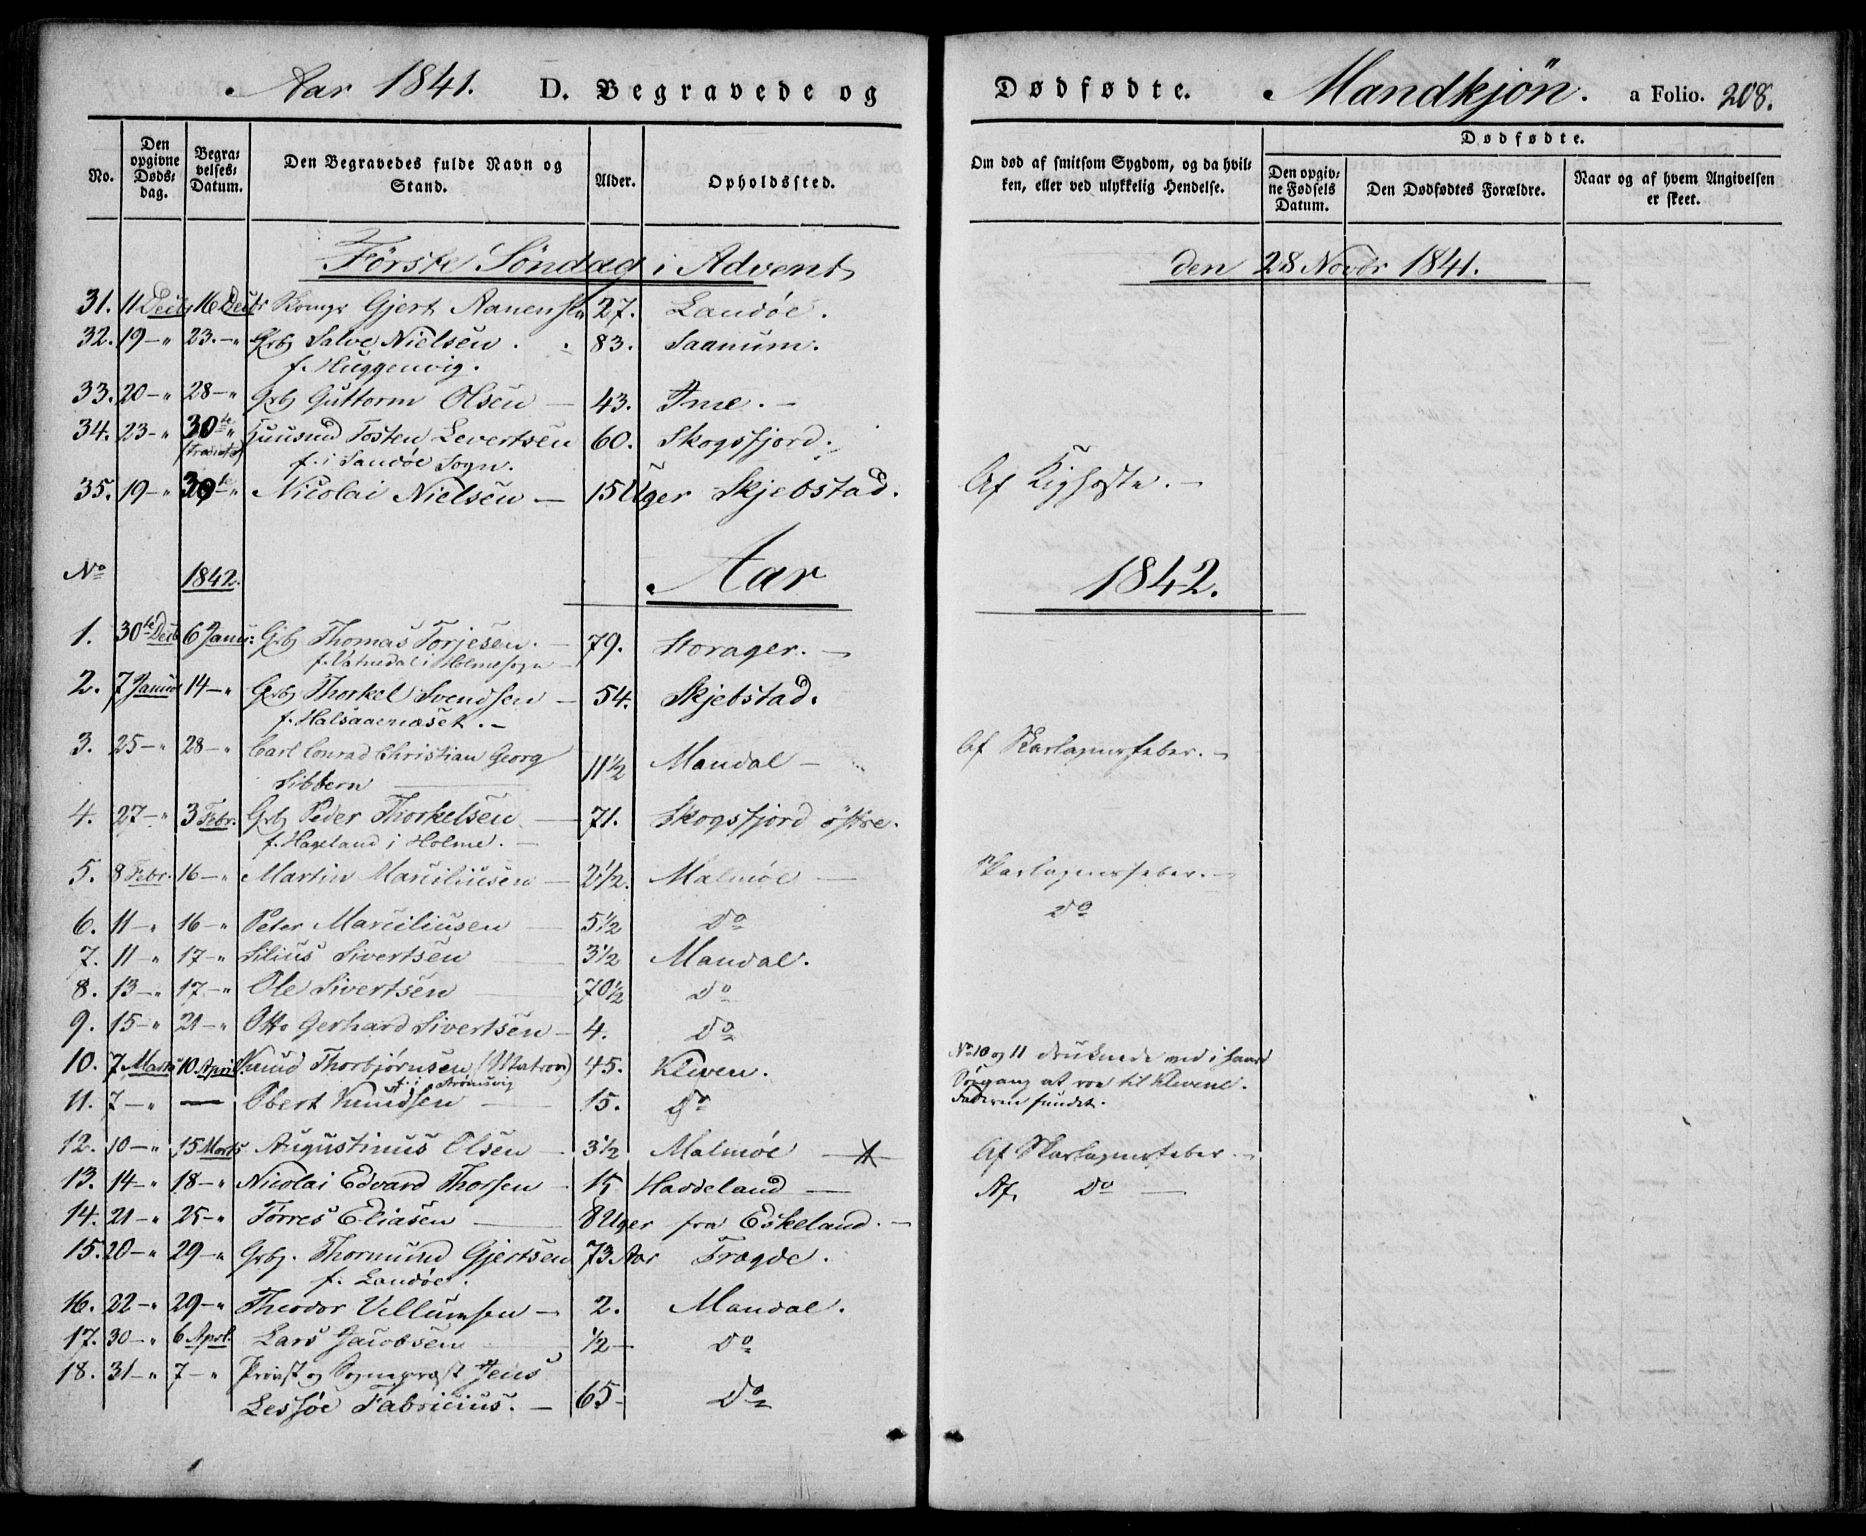 Aar 1841. D. Begravede og Dødfødte. Mandkjøn. a Folio. 208.
No.
Den opgivne Døds-dag.
Begra-velses-Datum.
Den Begravedes fulde Navn og Stand.
Alder.
Opholdssted.
Om død af smitsom Sygdom, og da hvil-ken, eller ved ulykkelig Hendelse.
Dødfødte.
Den opgiv-ne Fødsels Datum.
Den Dødfødtes Forældre.
Naar og af hvem Angivelsen er skeet.
Første Søndag i Advent den 28 Novbr 1841.
31. 11 Decbr 16 Decbr Gjert Aanensen 27. Landøe.
32. 19 – " 23. – " Grb Salve Nielsen . . 83. Saanum.
f. Huggenvig.
33. 20 – " 28 – " Grb Guttorm Olsen — 43. Ime. –
34. 23 – " 30te " Huusmd Tosten Levertsen 60. Skogsfjord.
f. i Sandøe Sogn.
35. 19 – " 30te – " Nicolai Nielsen — 15 Uger Skjebstad. Af Kighoste. –
No 1842. Aar 1842.
1. 30te Decb 6 Janur: Grb Thomas Torjesen. – 79. Storager. –
f. Vatnedal i Holme sogn
2. 7 Januar 14 – " Grb Thorkel Svendsen – 54. Skjebstad.
f. Halsaanæset. –
3. 25 – " 28 – " Carl Conrad Christian Georg
Sibbern 11 1/2 Mandal – Af Skarlagensfeber. –
4. 27 – " 3 Febr. Grb Peder Thorkelsen — 71. Skogsfjord østre.
f. Haugland i Holme. –
5. 8 Febr. 16 – " Martin Marciliusen — 2 1/2. Malmøe — Skarlagensfeber. –
6. 11 – " 16 – " Peter Marciliusen — 5 1/2 Do Do
7. 11 – " 17 – " Silius Sivertsen — 3 1/2 Mandal.
8. 13 – " 17 – " Ole Sivertsen — 70 1/2 Do
9. 15 – " 21 – " Otto Gerhard Sivertsen – 4. Do
10. 7 Marts 10 April Knud Thorbjørnsen (Matros) 45. Kleven. No 10 og 11 druknede ved i haard
f. i Strømsvig Søegang at roe til Klevene.
11. 7 – " — Obert Knudsen — 15. Do Faderen fundet.
12. 10 – " 15 Marts Augustinus Olsen – 3 1/2 Malmøe — Af Skarlagensfeber. –
13. 14 – " 18 – " Nicolai Edvard Thorsen – 15 Haddeland — Af. Do —
14. 21 – " 25 – " Tørres Eliasen — 8 Uger fra Eskeland. –
15. 20 – " 29 – " Grb. Thormund Gjertsen 73 Aar Trægde.
f. Landøe.
16. 22 – " 29 – " Theodor Villumsen – 2. Mandal.
17. 30 – " 6 Aprl. Lars Jacobsen — 1/2 – Do
18. 31 – " 7 – " Provst og Sognepræst Jens
Lessøe Fabricius. — 65 – Do